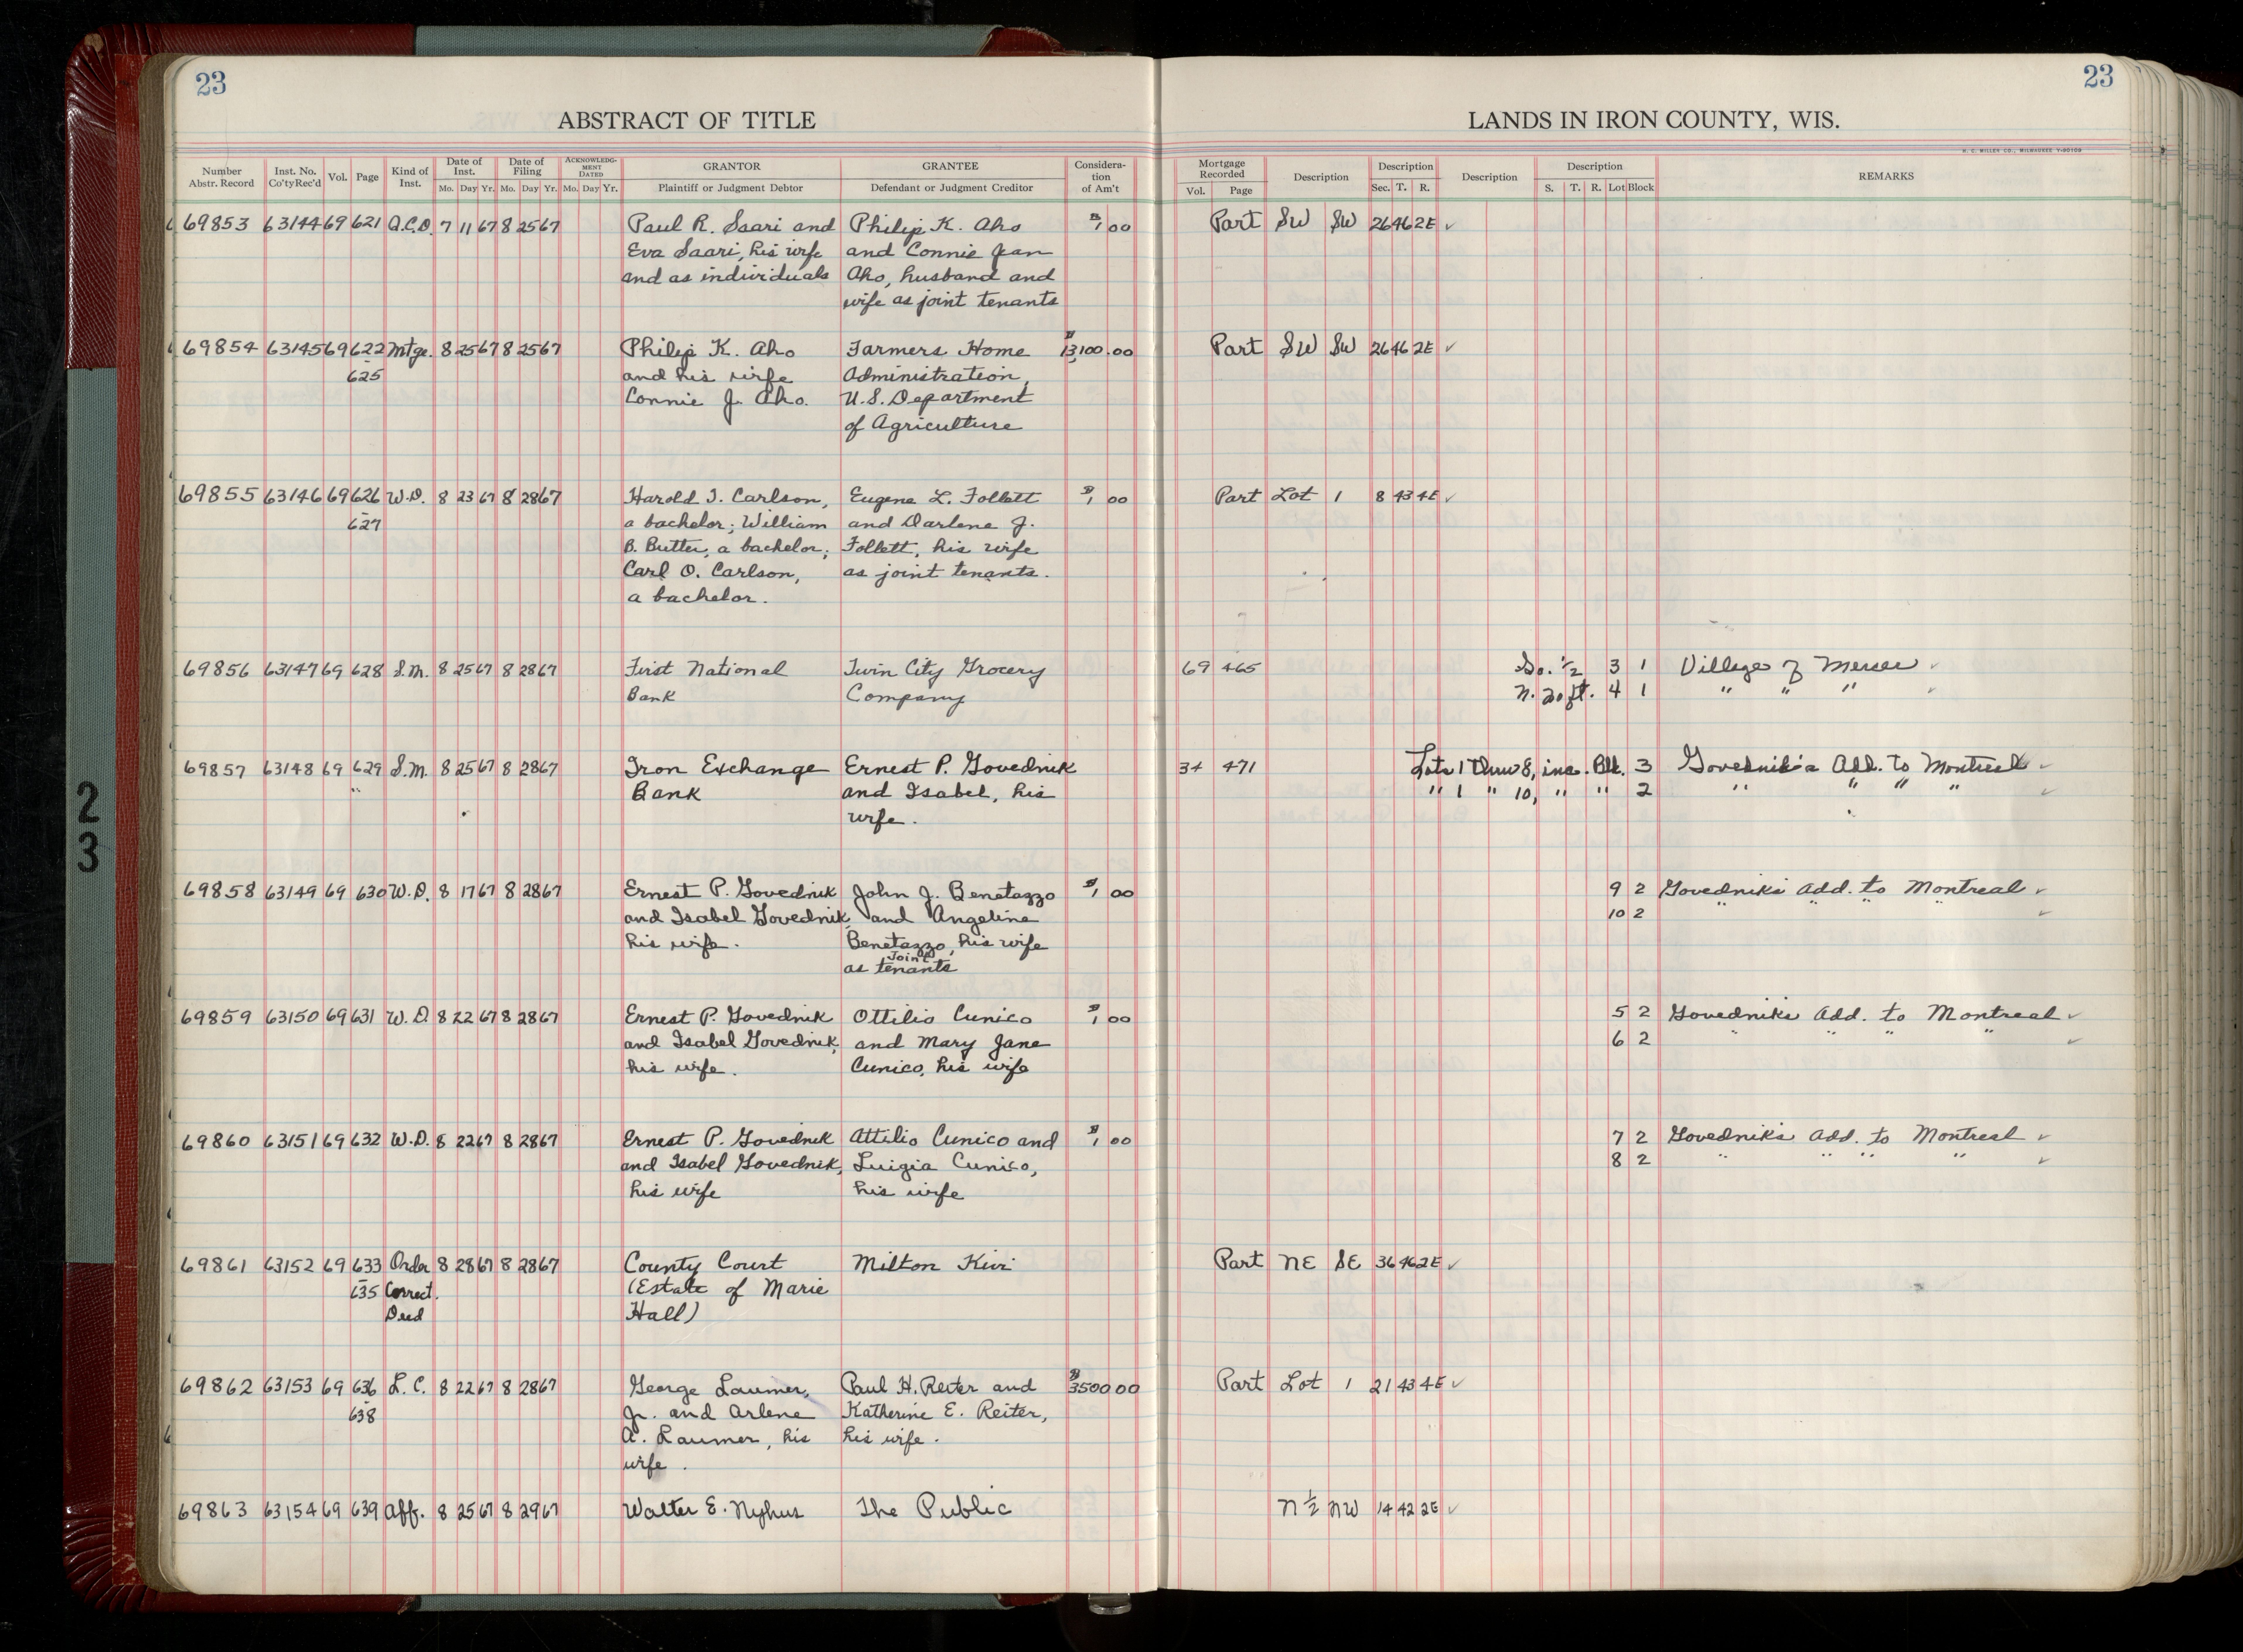 23
23
ABSTRACT OF TITLE
LANDS IN IRON COUNTY, WIS.
H. C. MILLER CO., MILWAUKEE
Number Abstr. Record Inst. No. Co'ty Rec'd Vol. Page Kind of Inst. Date of Inst. Mo. Day Yr. Date of Filing Mo. Day Yr. ACKNOWLEDGMENT DATED Mo. Day Yr. GRANTOR Plaintiff or Judgment Debtor GRANTEE Defendant or Judgment Creditor Consideration of Am't Mortgage Recorded Vol. Page Description Description Sec. T. R. Description Description S. T. R. Lot Block REMARKS
69853 63144 69 621 Q.C.D. 7 11 67 8 25 67 Paul R. Saari and Philip K. Aho $1 00 Part SW SW 26 46 2E ✓
Eva Saari, his wife and Connie Jean
and as individuals Aho, husband and
wife as joint tenants
69854 63145 69 622 Mtge. 8 25 67 8 25 67 Philip K. Aho Farmers Home $13,100.00 Part SW SW 26 46 2E ✓
- 625 and his wife Administration,
Connie J. Aho. U.S. Department
of Agriculture
69855 63146 69 626 W.D. 8 23 67 8 28 67 Harold I. Carlson, Eugene L. Follett $1 00 Part Lot 1 8 43 4E ✓
- 627 a bachelor; William and Darlene J.
B. Butter, a bachelor; Follett, his wife
Carl O. Carlson, as joint tenants.
a bachelor.
69856 63147 69 628 S.M. 8 25 67 8 28 67 First National Twin City Grocery 69 465 So. 1/2 3 1 Village of Mercer ✓
Bank Company N. 20 ft. 4 1 " " " ✓
69857 63148 69 629 S.M. 8 25 67 8 28 67 Iron Exchange Ernest P. Govednik 34 471 Lots 1 thru 8, inc. Blk. 3 Govednik's Add. to Montreal ✓
Bank and Isabel, his " 1 " 10, " " 2 " " " " ✓
wife.
69858 63149 69 630 W.D. 8 17 67 8 28 67 Ernest P. Govednik John J. Benetazzo $1 00 9 2 Govedniks Add. to Montreal ✓
and Isabel Govednik, and Angeline 10 2 " " " " ✓
his wife. Benetazzo, his wife
Joint
as tenants
69859 63150 69 631 W.D. 8 22 67 8 28 67 Ernest P. Govednik Ottilio Cunico $1 00 5 2 Govedniks Add. to Montreal ✓
and Isabel Govednik, and Mary Jane 6 2 " " " " ✓
his wife. Cunico, his wife
69860 63151 69 632 W.D. 8 22 67 8 28 67 Ernest P. Govednik Attilio Cunico and $1 00 7 2 Govedniks Add. to Montreal ✓
and Isabel Govednik, Luigia Cunico, 8 2 " " " " ✓
his wife his wife
69861 63152 69 633 Order 8 28 67 8 28 67 County Court Milton Kivi Part NE SE 36 46 2E ✓
- 635 Correct. (Estate of Marie
Deed Hall)
69862 63153 69 636 L.C. 8 22 67 8 28 67 George Laumer, Paul H. Reiter and $3500 00 Part Lot 1 21 43 4E ✓
- 638 Jr. and Arlene Katherine E. Reiter,
A. Laumer, his his wife.
wife.
69863 63154 69 639 Aff. 8 25 67 8 29 67 Walter E. Nyhus The Public N 1/2 NW 14 42 2E ✓
2
3